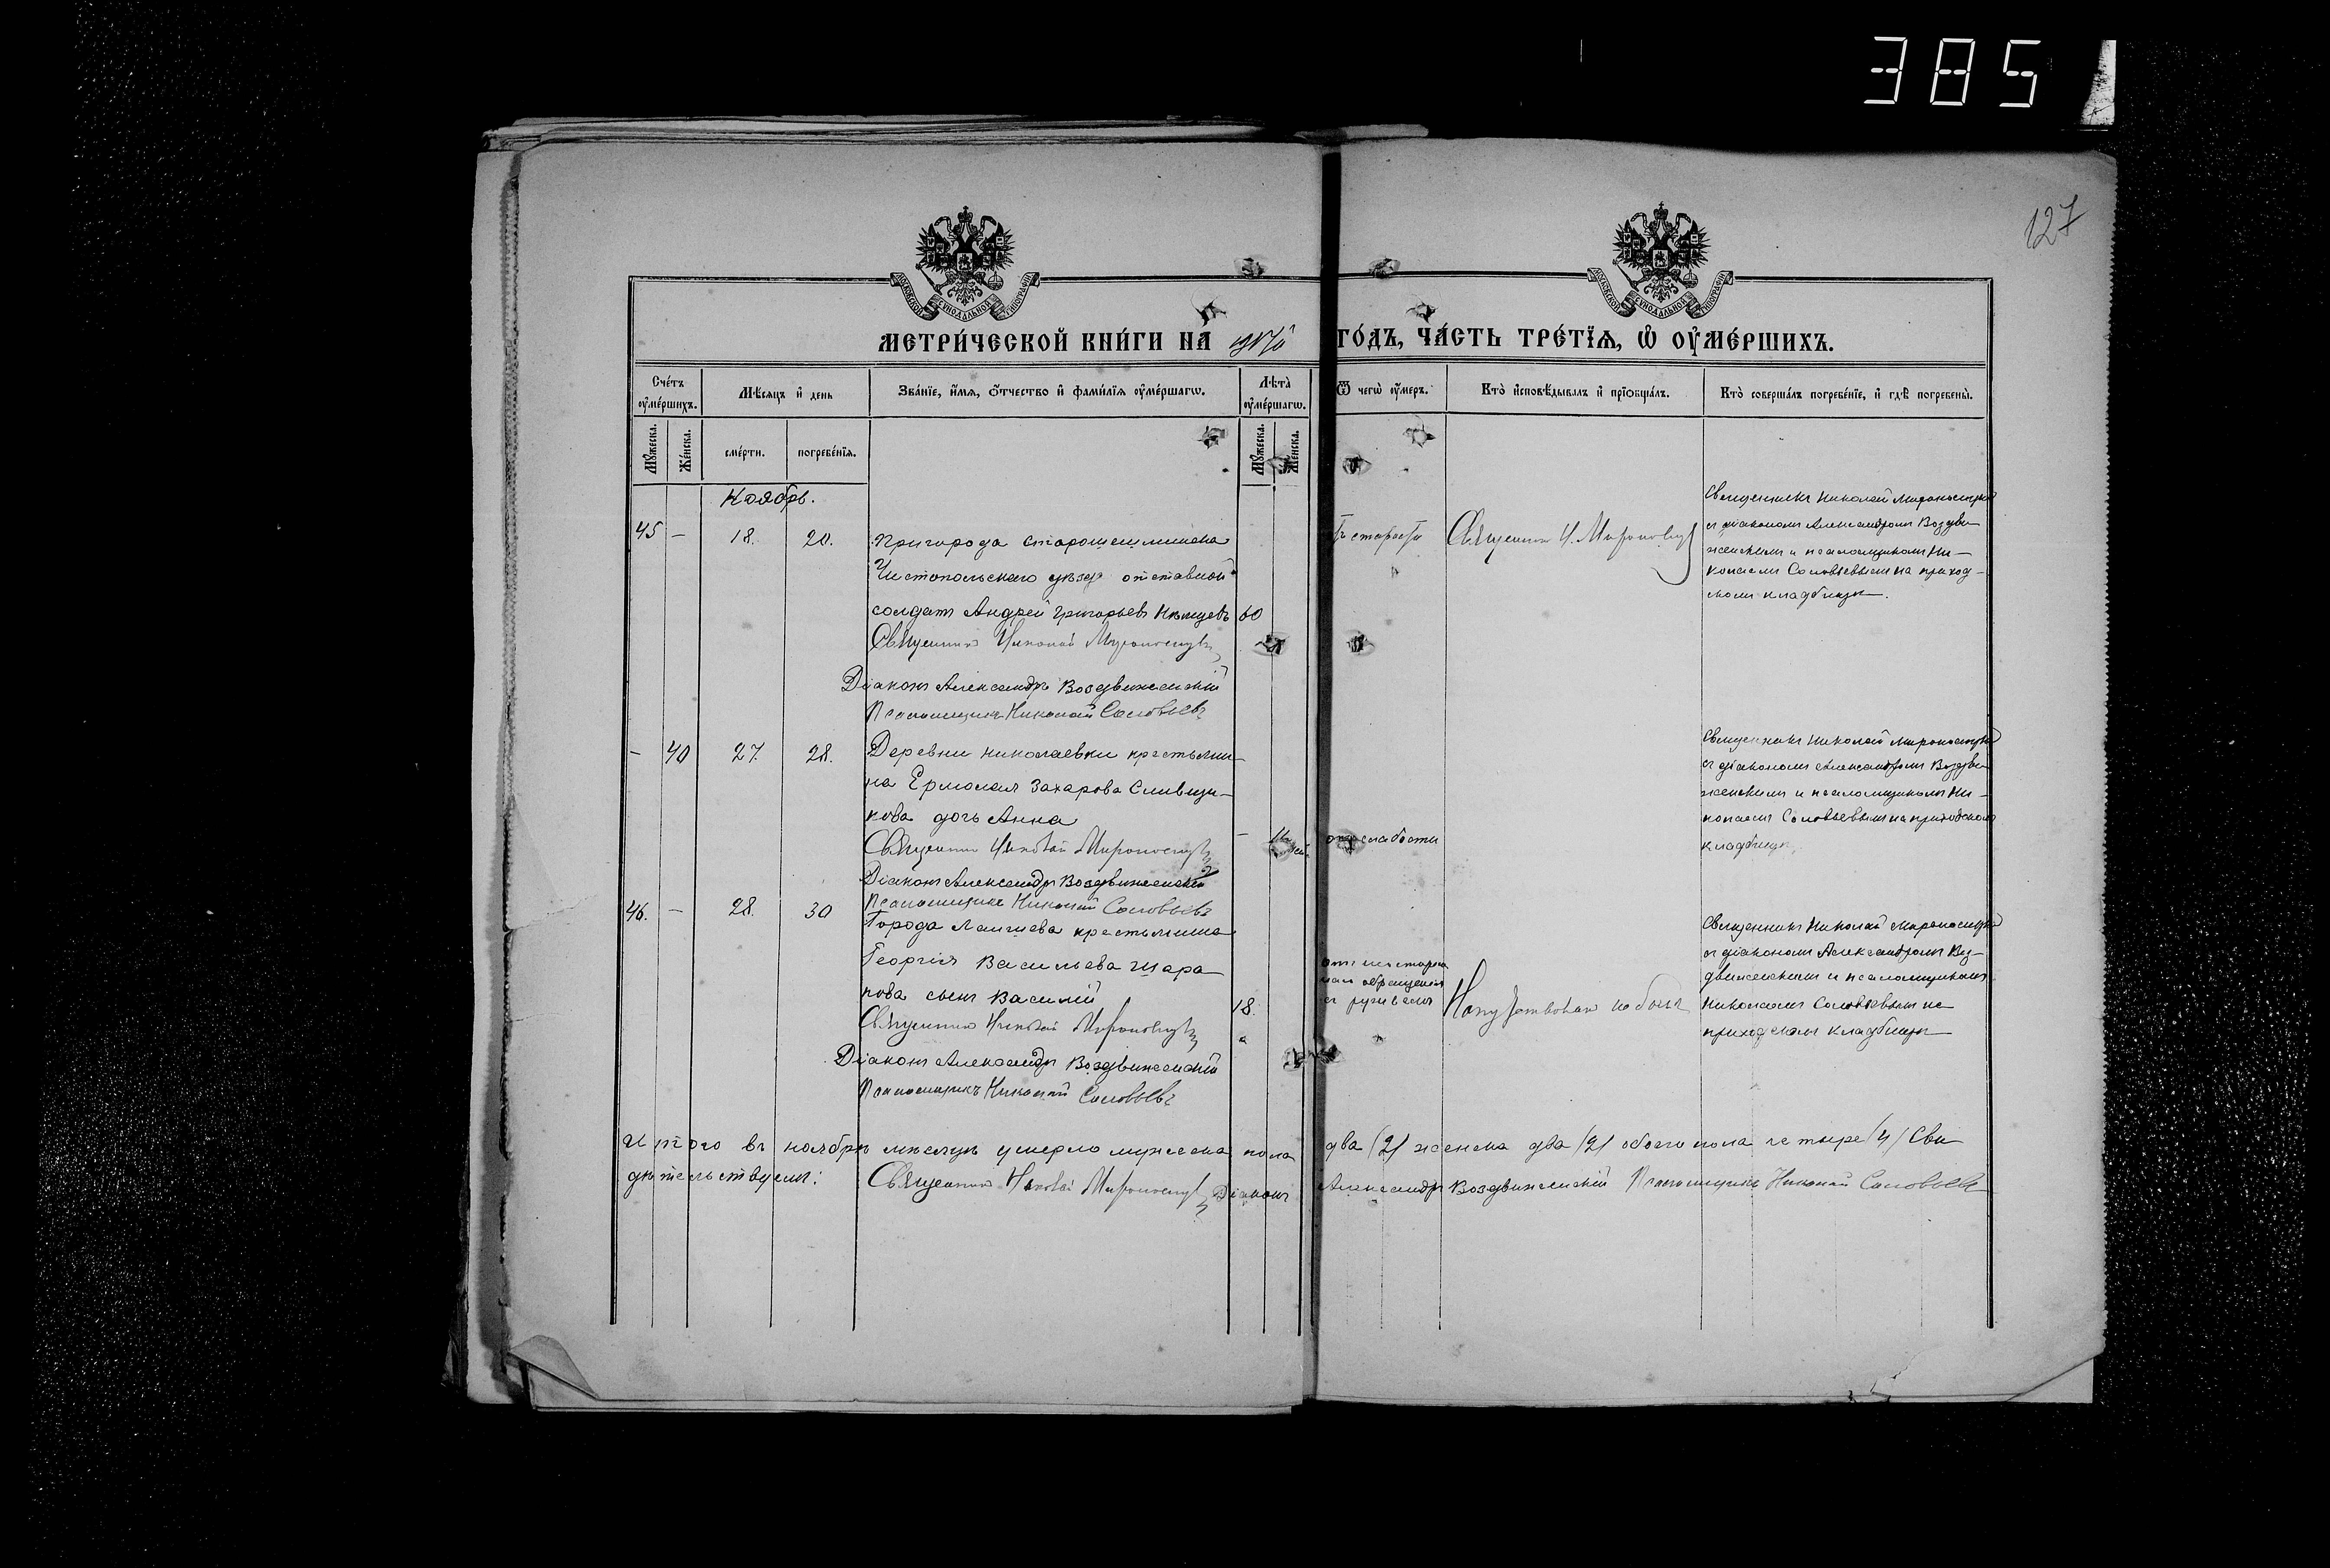 385
127
МОСКОВСКОЙ СѴНОДАЛЬНОЙ ТИПОГРАФІИ
МОСКОВСКОЙ СѴНОДАЛЬНОЙ ТИПОГРАФІИ
МЕТРИ́ЧЕСКОЙ КНИ́ГИ НА̀ ГО́ДЪ, ЧА́СТЬ ТРЕ́ТЇѦ, Ѽ ОУ҆МЕ́РШИХЪ.
Сче́тъ оу҆ме́ршихъ.
Мѣ́сяцъ и҆ день
Зва́нїе, и҆́мя, ѻ҆́тчество и҆ фами́лїя оу҆ме́ршагѡ.
Лѣ́та оу҆ме́ршагѡ.
Ѿ чегѡ̀ оу҆́меръ.
Кто̀ и҆сповѣ́дывалъ и҆ прїѡбща́лъ.
Кто̀ соверша́лъ погребе́нїе, и҆ гдѣ̀ погребены̀.
Мꙋ́жеска.
Же́нска.
сме́рти.
погребе́нїя.
Мꙋ́жеска.
Же́нска.
Ноябрь.
45 – 18. 20.
Пригорода Старошешминска
Чистопольскаго уѣзда отставной
солдатъ Андрей Григорьевъ Нѣмцевъ 60
Священникъ Николай Мироносицкій
Діаконъ Александръ Воздвиженскій
Псаломщикъ Николай Соловьевъ
отъ старости
Священникъ Н. Мироносицкій
Священникъ Николай Мироносицкій
съ діакономъ Александромъ Воздви-
женскимъ и псаломщикомъ Ни-
колаемъ Соловьевымъ на приход-
скомъ кладбищѣ.
– 40 27. 28.
Деревни Николаевки крестьяни-
на Ермолая Захарова Сливщи-
кова дочь Анна
Священникъ Николай Мироносицкій
Діаконъ Александръ Воздвиженскій
Псаломщикъ Николай Соловьевъ
отъ слабости
Священникъ Николай Мироносицкій
съ діакономъ Александромъ Воздви-
женскимъ и псаломщикомъ Ни-
колаемъ Соловьевымъ на приходскомъ
кладбищѣ.
46. – 28. 30
Города Лаишева крестьянина
Георгія Васильева Шара-
пова сынъ Василій 18.
Священникъ Николай Мироносицкій
Діаконъ Александръ Воздвиженскій
Псаломщикъ Николай Соловьевъ
отъ неосторож-
наго обращенія
съ ружьемъ
Напутствованъ не былъ
Священникъ Николай Мироносицкій
съ діакономъ Александромъ Воз-
движенскимъ и псаломщикомъ
Николаемъ Соловьевымъ на
приходскомъ кладбищѣ
Итого въ ноябрѣ мѣсяцѣ умерло мужеска пола два /2/ женска два /2/ обоего пола четыре /4/ Сви-
дѣтельствуемъ: Священникъ Николай Мироносицкій Діаконъ Александръ Воздвиженскій Псаломщикъ Николай Соловьевъ